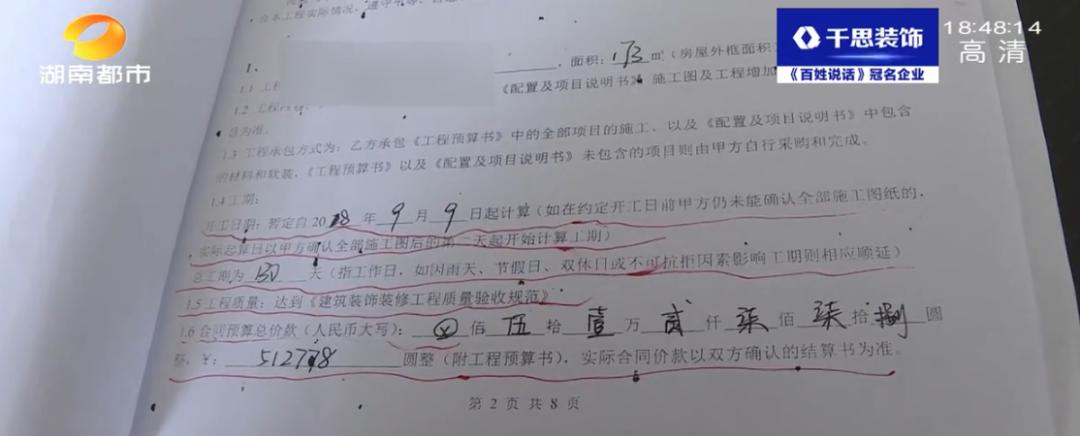 湖南都市
千思装饰
《百姓说话》冠名企业
18:48:14
高清
合本工程实际情况,遵守本
1、 ,面积:173㎡(房屋外框面积
1.1 工程
《配置及项目说明书》、施工图及工程增加
1.2 工程
目为准。
1.3 工程承包方式为:乙方承包《工程预算书》中的全部项目的施工、以及《配置及项目说明书》中包含
的材料和软装,《工程预算书》以及《配置及项目说明书》未包含的项目则由甲方自行采购和完成。
1.4 工期:
开工日期:暂定自2018年9月9日起计算(如在约定开工日前甲方仍未能确认全部施工图纸的,
实际起算日以甲方确认全部施工图后的第二天起开始计算工期)
总工期为130天(指工作日,如因雨天、节假日、双休日或不可抗拒因素影响工期则相应顺延)
1.5 工程质量:达到《建筑装饰装修工程质量验收规范》
1.6 合同预算总价款(人民币大写):ⓧ佰伍拾壹万贰仟柒佰柒拾捌圆
整,¥:512778圆整(附工程预算书),实际合同价款以双方确认的结算书为准。
第 2 页 共 8 页